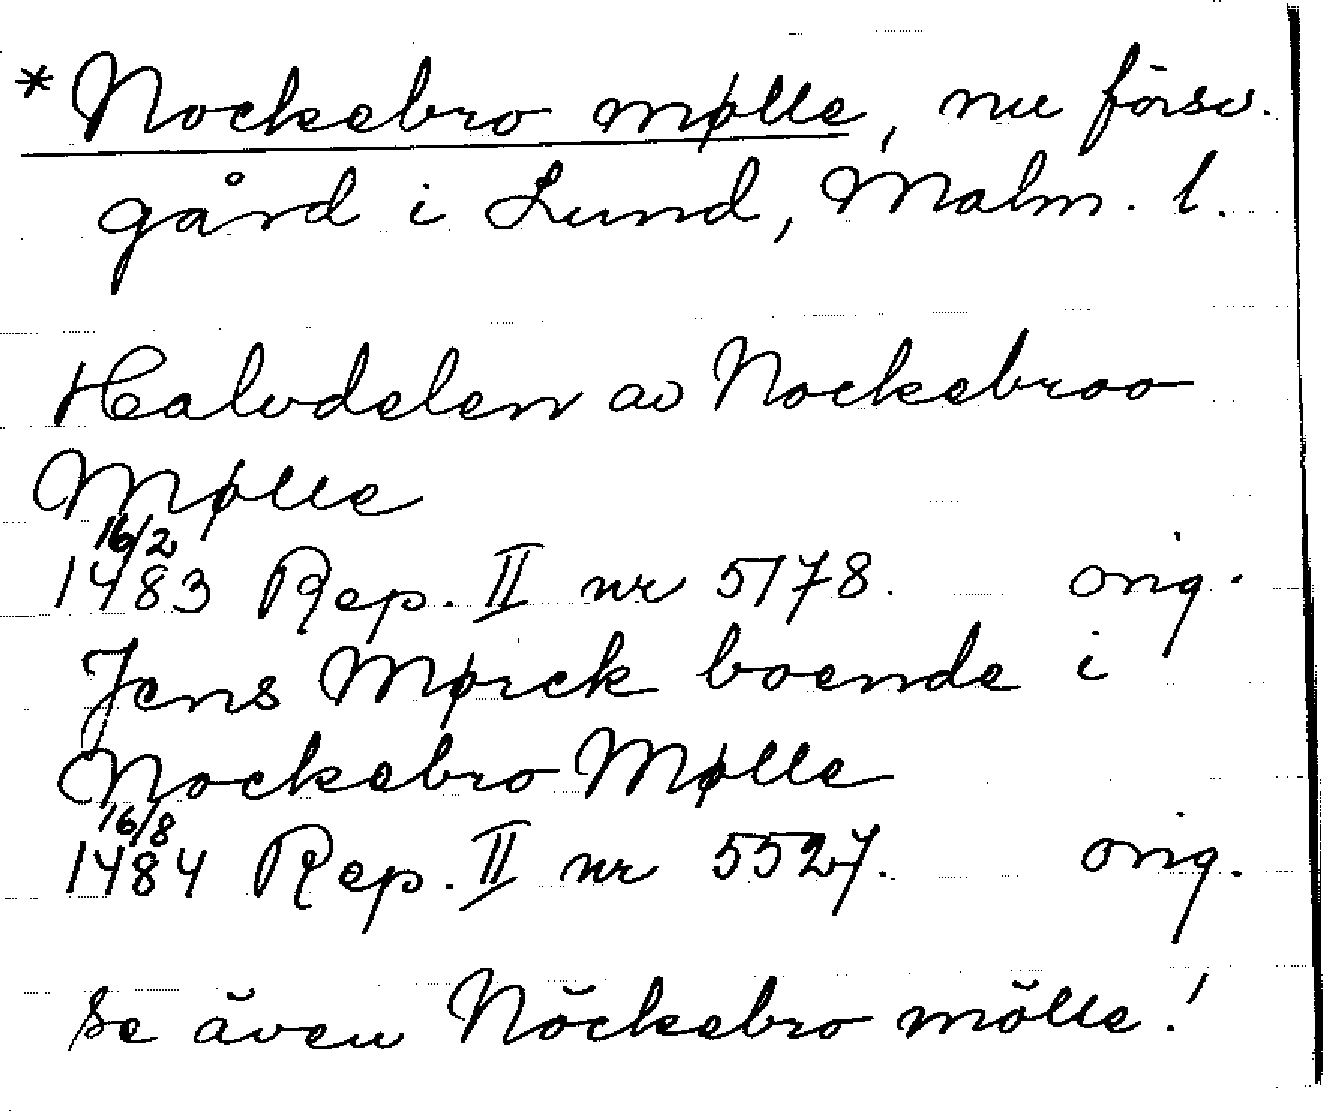 *Nockebro mølle, nu försv.
gård i Lund, Malm. l.
Halvdelen av Nockebroo
Mølle
16/2
1483 Rep. II nr 5178. orig.
Jens Mørck boende i
Nockebro Mølle
16/8
1484 Rep. II nr 5527. orig.
Se även Nöckebro mölle!